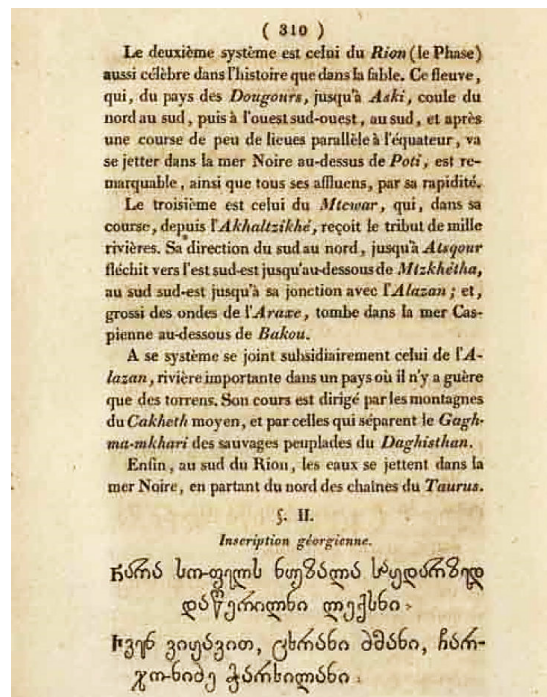 ( 310 )
Le deuxième système est celui du Rion (le Phase)
aussi célèbre dans l'histoire que dans la fable. Ce fleuve,
qui, du pays des Dougours, jusqu'à Aski, coule du
nord au sud, puis à l'ouest sud-ouest, au sud, et après
une course de peu de lieues parallèle à l'équateur, va
se jetter dans la mer Noire au-dessus de Poti, est re-
marquable, ainsi que tous ses affluens, par sa rapidité.
Le troisième est celui du Mtewar, qui, dans sa
course, depuis l'Akhaltzikhé, reçoit le tribut de mille
rivières. Sa direction du sud au nord, jusqu'à Atsqour
fléchit vers l'est sud-est jusqu'au-dessous de Mtzkhétha,
au sud sud-est jusqu'à sa jonction avec l'Alazan; et,
grossi des ondes de l'Araxe, tombe dans la mer Cas-
pienne au-dessous de Bakou.
A se système se joint subsidiairement celui de l'A-
lazan, rivière importante dans un pays où il n'y a guère
que des torrens. Son cours est dirigé par les montagnes
du Cakheth moyen, et par celles qui séparent le Gagh-
ma-mkhari des sauvages peuplades du Daghisthan.
Enfin, au sud du Rion, les eaux se jettent dans la
mer Noire, en partant du nord des chaînes du Taurus.
§. II.
Inscription géorgienne.
ნარა სოფელს ნუზალა საყდარზედ
დაწერილნი ლექსნი.
ჩვენ ვიყავით, ცხრანი ძმანი, ჩარ-
ჯონიძე ჭარხილანი.